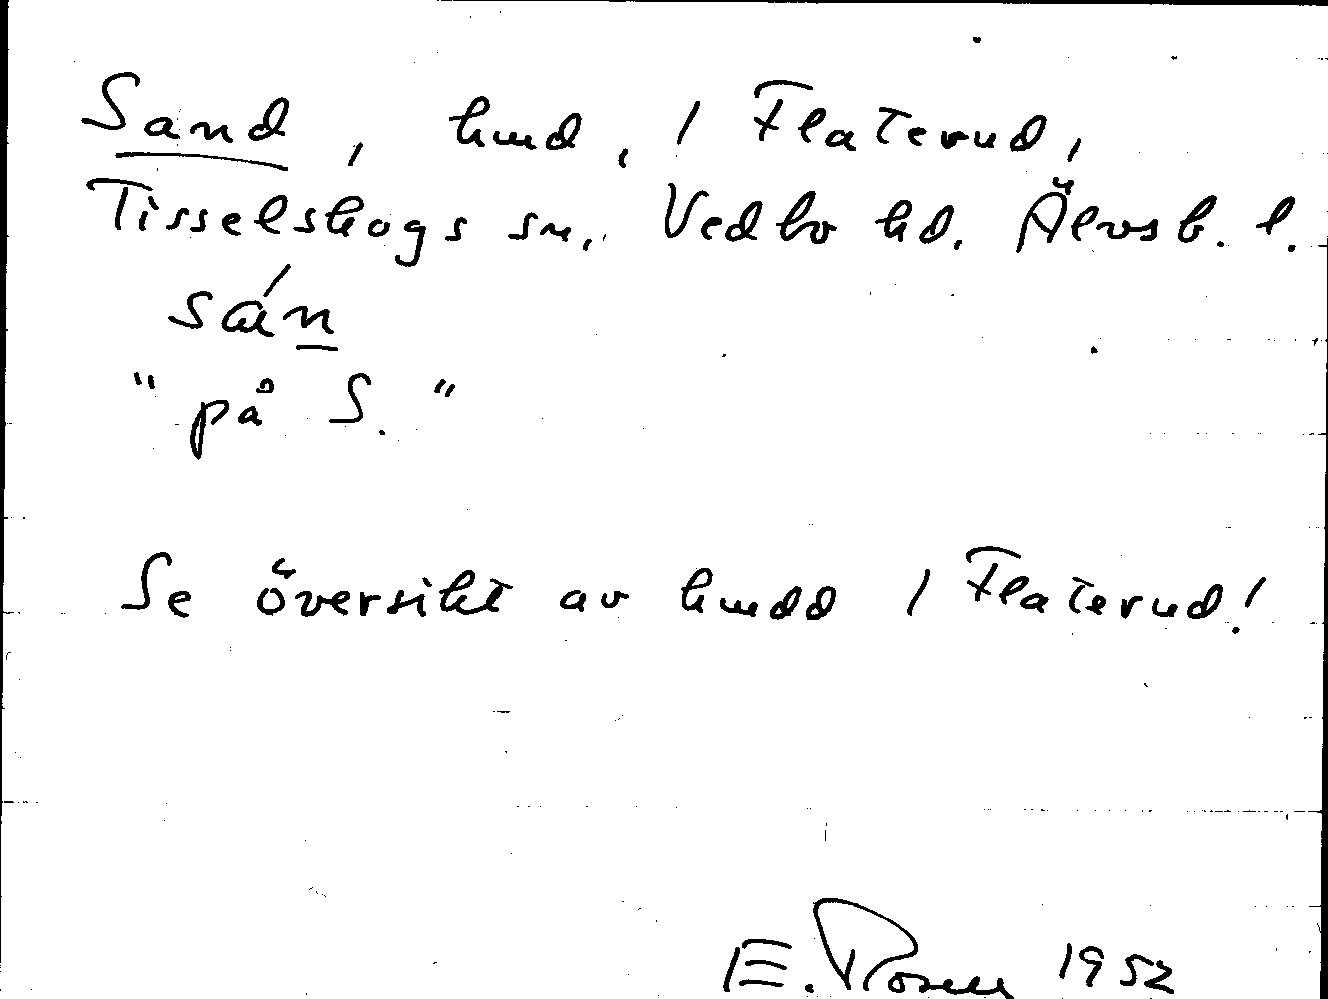 Sand, hmd, 1 Flaterud,
Tisselskogs sn, Vedbo hd. Älvsb. l.
sán
"på S."
Se översikt av hmdd 1 Flaterud!
E. Rosell 1952